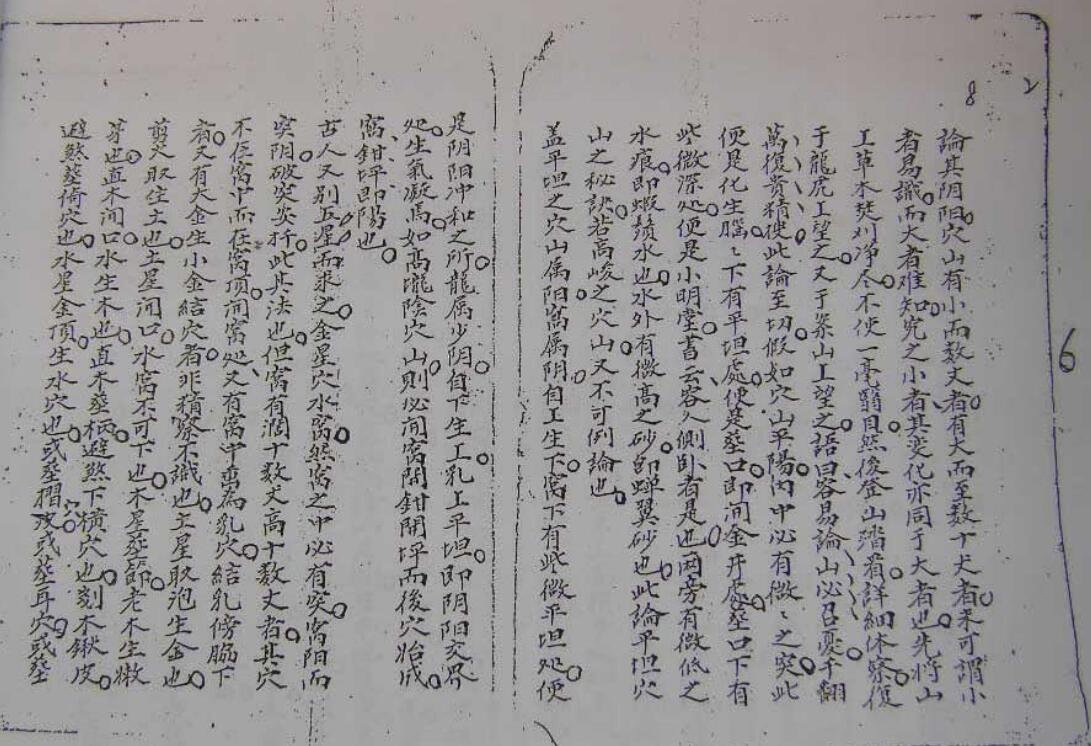 8 2
6
論其阴阳。穴山有小而数丈者。有大而至数十丈者。未可謂小
者易識。而大者难知。究之小者其变化亦同于大者也。先将山
上草木焚刈净尽。不使一毫翳目。然後登山踏看。詳細体察。復
于龍虎上望之。又于案山上望之。語曰容易論山必召憂。千翻
萬復貴精使。此論至切。假如穴山平陽。内中必有微〻之突。此
便是化生腦。〻下有平坦處。便是塟口。即開金井處。塟口下有
些微深处。便是小明堂。書云容人側卧者是也。两旁有微低之
水痕。即蝦鬚水也。水外有微高之砂。即蝉翼砂也。此論平坦穴
山之秘訣。若高峻之穴山。又不可倒論也。
盖平坦之穴山属阳。窩属阴。自上生下。窩下有些微平坦处。便
是阴阳冲和之所。龍属少阴。自下生上。乳上平坦。即阴阳交界
处。生氣凝焉。如高壠陰穴山。則必開窩開鉗開坪而後穴始成。
窩鉗坪即陽也。
古人又别五星而求之。金星穴水窩。然窩之中必有突。窩阳而
突阴。破突尖扦。此其法也。但窩有濶十数丈高十数丈者。其穴
不在窩中而在窩頂。開窩处、又有窩中垂為乳穴。結乳傍脇下
者。又有大金生小金結穴者。非積察不識也。土星取泡生金也。
剪尖取生土也。土星開口。水窩不可下也。木星塟節。老木生嫩
芽也。直木開口。水生木也。直木塟柄。避煞下横穴也。刻木鍬皮。
避煞塟倚穴也。水星金頂。生水穴也。或塟摺皮。或塟耳穴。或塟